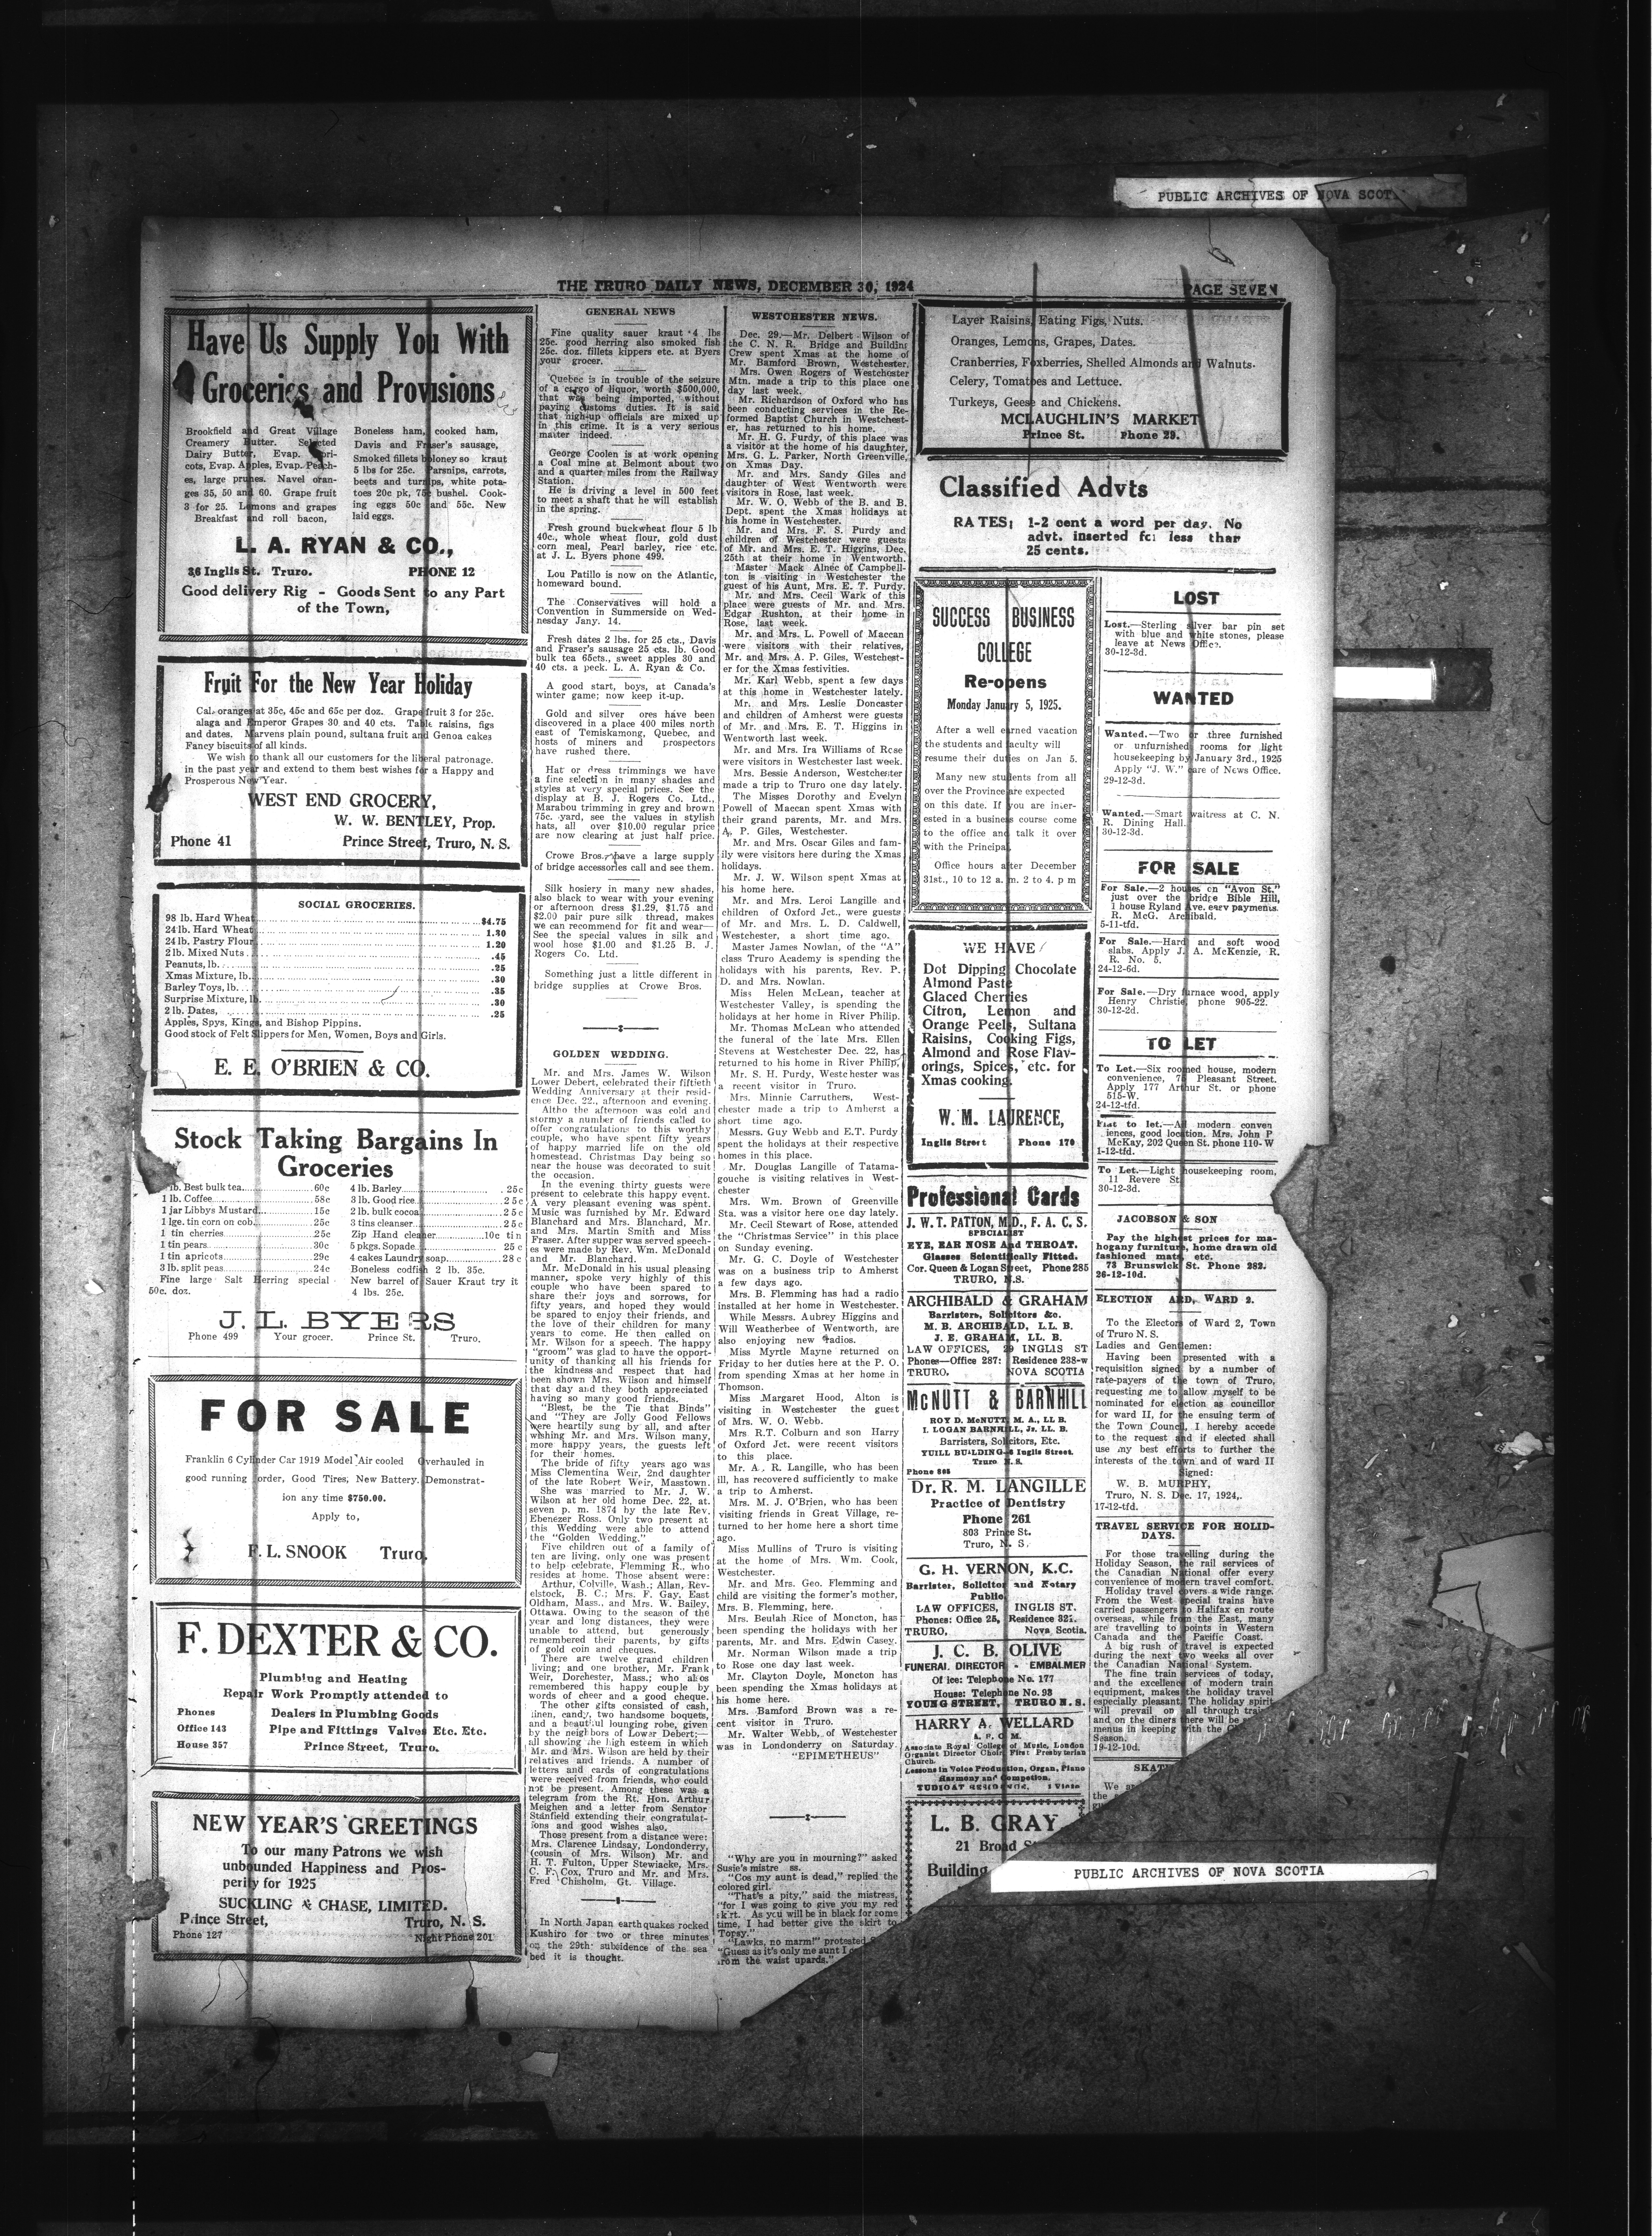 PUBLIC ARCHIVES OF NOVA SCOT
THE TRURO DAILY NEWS, DECEMBER 30, 1924
PAGE SEVEN
Have Us Supply You With
Groceries and Provisions
Brookfield and Great Village
Creamery Butter. Selected
Dairy Butter, Evap. Apri-
cots, Evap. Apples, Evap. Peach-
es, large prunes. Navel oran-
ges 35, 50 and 60. Grape fruit
3 for 25. Lemons and grapes
Breakfast and roll bacon,
Boneless ham, cooked ham,
Davis and Fraser's sausage,
Smoked fillets boloney so kraut
5 lbs for 25c. Parsnips, carrots,
beets and turnips, white pota-
toes 20c pk, 75c bushel. Cook-
ing eggs 50c and 55c. New
laid eggs.
L. A. RYAN & CO.,
36 Inglis St. Truro. PHONE 12
Good delivery Rig - Goods Sent to any Part
of the Town,
Fruit For the New Year Holiday
Cal. oranges at 35c, 45c and 65c per doz. Grape fruit 3 for 25c.
alaga and Emperor Grapes 30 and 40 cts. Table raisins, figs
and dates. Marvens plain pound, sultana fruit and Genoa cakes
Fancy biscuits of all kinds.
We wish to thank all our customers for the liberal patronage.
in the past year and extend to them best wishes for a Happy and
Prosperous New Year.
WEST END GROCERY,
W. W. BENTLEY, Prop.
Phone 41 Prince Street, Truro, N. S.
SOCIAL GROCERIES.
98 lb. Hard Wheat $4.75
24 lb. Hard Wheat 1.30
24 lb. Pastry Flour 1.20
2 lb. Mixed Nuts .45
Peanuts, lb. .25
Xmas Mixture, lb. .30
Barley Toys, lb. .35
Surprise Mixture, lb .30
2 lb. Dates, .25
Apples, Spys, Kings, and Bishop Pippins.
Good stock of Felt Slippers for Men, Women, Boys and Girls.
E. E. O'BRIEN & CO.
Stock Taking Bargains In
Groceries
lb. Best bulk tea 60c
1 lb. Coffee 58c
1 jar Libbys Mustard 15c
1 lge. tin corn on cob 25c
1 tin cherries 25c
1 tin pears 30c
1 tin apricots 29c
3 lb. split peas 24c
Fine large Salt Herring special
50c. doz.
4 lb. Barley 25c
3 lb. Good rice 25c
2 lb. bulk cocoa 25c
3 tins cleanser 25c
Zip Hand cleaner 10c tin
5 pkgs. Sopade 25c
4 cakes Laundry soap 28c
Boneless codfish 2 lb. 35c.
New barrel of Sauer Kraut try it
4 lbs. 25c.
J. L. BYERS
Phone 499 Your grocer. Prince St. Truro.
FOR SALE
Franklin 6 Cylinder Car 1919 Model Air cooled Overhauled in
good running order, Good Tires, New Battery. Demonstrat-
ion any time $750.00.
Apply to,
F. L. SNOOK Truro.
F. DEXTER & CO.
Plumbing and Heating
Repair Work Promptly attended to
Phones Dealers in Plumbing Goods
Office 143 Pipe and Fittings Valves Etc. Etc.
House 357 Prince Street, Truro.
NEW YEAR'S GREETINGS
To our many Patrons we wish
unbounded Happiness and Pros-
perity for 1925
SUCKLING & CHASE, LIMITED.
Prince Street, Truro, N. S.
Phone 127 Night Phone 201
GENERAL NEWS
Fine quality sauer kraut 4 lbs
25c. good herring also smoked fish
25c. doz. fillets kippers etc. at Byers
your grocer.
Quebec is in trouble of the seizure
of a cargo of liquor, worth $500,000,
that was being imported, without
paying customs duties. It is said
that high-up officials are mixed up
in this crime. It is a very serious
matter indeed.
George Coolen is at work opening
a Coal mine at Belmont about two
and a quarter miles from the Railway
Station.
He is driving a level in 500 feet
to meet a shaft that he will establish
in the spring.
Fresh ground buckwheat flour 5 lb
40c., whole wheat flour, gold dust
corn meal, Pearl barley, rice etc.
at J. L. Byers phone 499.
Lou Patillo is now on the Atlantic,
homeward bound.
The Conservatives will hold a
Convention in Summerside on Wed-
nesday Jany. 14.
Fresh dates 2 lbs. for 25 cts., Davis
and Fraser's sausage 25 cts. lb. Good
bulk tea 65cts., sweet apples 30 and
40 cts. a peck. L. A. Ryan & Co.
A good start, boys, at Canada's
winter game; now keep it-up.
Gold and silver ores have been
discovered in a place 400 miles north
east of Temiskamong, Quebec, and
hosts of miners and prospectors
have rushed there.
Hat or dress trimmings we have
a fine selection in many shades and
styles at very special prices. See the
display at B. J. Rogers Co. Ltd.,
Marabou trimming in grey and brown
75c. yard, see the values in stylish
hats, all over $10.00 regular price
are now clearing at just half price.
Crowe Bros. have a large supply
of bridge accessories call and see them.
Silk hosiery in many new shades,
also black to wear with your evening
or afternoon dress $1.29, $1.75 and
$2.00 pair pure silk thread, makes
we can recommend for fit and wear—
See the special values in silk and
wool hose $1.00 and $1.25 B. J.
Rogers Co. Ltd.
Something just a little different in
bridge supplies at Crowe Bros.
GOLDEN WEDDING.
Mr. and Mrs. James W. Wilson
Lower Debert, celebrated their fiftieth
Wedding Anniversary at their resid-
ence Dec. 22., afternoon and evening.
Altho the afternoon was cold and
stormy a number of friends called to
offer congratulations to this worthy
couple, who have spent fifty years
of happy married life on the old
homestead. Christmas Day being so
near the house was decorated to suit
the occasion.
In the evening thirty guests were
present to celebrate this happy event.
A very pleasant evening was spent.
Music was furnished by Mr. Edward
Blanchard and Mrs. Blanchard, Mr.
and Mrs. Martin Smith and Miss
Fraser. After supper was served speech-
es were made by Rev. Wm. McDonald
and Mr. Blanchard.
Mr. McDonald in his usual pleasing
manner, spoke very highly of this
couple who have been spared to
share their joys and sorrows, for
fifty years, and hoped they would
be spared to enjoy their friends, and
the love of their children for many
years to come. He then called on
Mr. Wilson for a speech. The happy
"groom" was glad to have the opport-
unity of thanking all his friends for
the kindness and respect that had
been shown Mrs. Wilson and himself
that day and they both appreciated
having so many good friends.
"Blest, be the Tie that Binds"
and "They are Jolly Good Fellows
were heartily sung by all, and after
wishing Mr. and Mrs. Wilson many,
more happy years, the guests left
for their homes.
The bride of fifty years ago was
Miss Clementina Weir, 2nd daughter
of the late Robert Weir, Masstown.
She was married to Mr. J. W.
Wilson at her old home Dec. 22, at.
seven p. m. 1874 by the late Rev.
Ebenezer Ross. Only two present at
this Wedding were able to attend
the "Golden Wedding."
Five children out of a family of
ten are living, only one was present
to help celebrate, Flemming R., who
resides at home. Those absent were:
Arthur, Colville, Wash.; Allan, Rev-
elstock, B. C.; Mrs. F. Gay, East
Oldham, Mass., and Mrs. W. Bailey,
Ottawa. Owing to the season of the
year and long distances, they were
unable to attend, but generously
remembered their parents, by gifts
of gold coin and cheques.
There are twelve grand children
living; and one brother, Mr. Frank
Weir, Dorchester, Mass.; who also
remembered this happy couple by
words of cheer and a good cheque.
The other gifts consisted of cash,
linen, candy, two handsome boquets,
and a beautiful lounging robe, given
by the neighbors of Lower Debert;—
all showing the high esteem in which
Mr. and Mrs. Wilson are held by their
relatives and friends. A number of
letters and cards of congratulations
were received from friends, who could
not be present. Among these was a
telegram from the Rt. Hon. Arthur
Meighen and a letter from Senator
Stanfield extending their congratulat-
ions and good wishes also.
Those present from a distance were:
Mrs. Clarence Lindsay, Londonderry,
(cousin of Mrs. Wilson) Mr. and
H. T. Fulton, Upper Stewiacke, Mrs.
C. F. Cox, Truro and Mr. and Mrs.
Fred Chisholm, Gt. Village.
In North Japan earthquakes rocked
Kushiro for two or three minutes
on the 29th subsidence of the sea
bed it is thought.
WESTCHESTER NEWS.
Dec. 29.—Mr. Delbert Wilson of
the C. N. R. Bridge and Building
Crew spent Xmas at the home of
Mr. Bamford Brown, Westchester.
Mrs. Owen Rogers of Westchester
Mtn. made a trip to this place one
day last week.
Mr. Richardson of Oxford who has
been conducting services in the Re-
formed Baptist Church in Westchest-
er, has returned to his home.
Mr. H. G. Purdy, of this place was
a visitor at the home of his daughter,
Mrs. G. L. Parker, North Greenville,
on Xmas Day.
Mr. and Mrs. Sandy Giles and
daughter of West Wentworth were
visitors in Rose, last week.
Mr. W. O. Webb of the B. and B.
Dept. spent the Xmas holidays at
his home in Westchester.
Mr. and Mrs. F. S. Purdy and
children of Westchester were guests
of Mr. and Mrs. E. T. Higgins, Dec.
25th at their home in Wentworth.
Master Mack Alnee of Campbell-
ton is visiting in Westchester the
guest of his Aunt, Mrs. E. T. Purdy.
Mr. and Mrs. Cecil Wark of this
place were guests of Mr. and Mrs.
Edgar Rushton, at their home in
Rose, last week.
Mr. and Mrs. L. Powell of Maccan
were visitors with their relatives,
Mr. and Mrs. A. P. Giles, Westchest-
er for the Xmas festivities.
Mr. Karl Webb, spent a few days
at this home in Westchester lately.
Mr. and Mrs. Leslie Doncaster
and children of Amherst were guests
of Mr. and Mrs. E. T. Higgins in
Wentworth last week.
Mr. and Mrs. Ira Williams of Rose
were visitors in Westchester last week.
Mrs. Bessie Anderson, Westchester
made a trip to Truro one day lately.
The Misses Dorothy and Evelyn
Powell of Maccan spent Xmas with
their grand parents, Mr. and Mrs.
A. P. Giles, Westchester.
Mr. and Mrs. Oscar Giles and fam-
ily were visitors here during the Xmas
holidays.
Mr. J. W. Wilson spent Xmas at
his home here.
Mr. and Mrs. Leroi Langille and
children of Oxford Jct., were guests
of Mr. and Mrs. L. D. Caldwell,
Westchester, a short time ago.
Master James Nowlan, of the "A"
class Truro Academy is spending the
holidays with his parents, Rev. P.
D. and Mrs. Nowlan.
Miss Helen McLean, teacher at
Westchester Valley, is spending the
holidays at her home in River Philip.
Mr. Thomas McLean who attended
the funeral of the late Mrs. Ellen
Stevens at Westchester Dec. 22, has
returned to his home in River Philip.
Mr. S. H. Purdy, Westchester was
a recent visitor in Truro.
Mrs. Minnie Carruthers, West-
chester made a trip to Amherst a
short time ago.
Messrs. Guy Webb and E.T. Purdy
spent the holidays at their respective
homes in this place.
Mr. Douglas Langille of Tatama-
gouche is visiting relatives in West-
chester
Mrs. Wm. Brown of Greenville
Sta. was a visitor here one day lately.
Mr. Cecil Stewart of Rose, attended
the "Christmas Service" in this place
on Sunday evening.
Mr. G. C. Doyle of Westchester
was on a business trip to Amherst
a few days ago.
Mrs. B. Flemming has had a radio
installed at her home in Westchester.
While Messrs. Aubrey Higgins and
Will Weatherbee of Wentworth, are
also enjoying new radios.
Miss Myrtle Mayne returned on
Friday to her duties here at the P. O.
from spending Xmas at her home in
Thomson.
Miss Margaret Hood, Alton is
visiting in Westchester the guest
of Mrs. W. O. Webb.
Mrs R.T. Colburn and son Harry
of Oxford Jct. were recent visitors
to this place.
Mr. A. R. Langille, who has been
ill, has recovered sufficiently to make
a trip to Amherst.
Mrs. M. J. O'Brien, who has been
visiting friends in Great Village, re-
turned to her home here a short time
ago.
Miss Mullins of Truro is visiting
at the home of Mrs. Wm. Cook,
Westchester.
Mr. and Mrs. Geo. Flemming and
child are visiting the former's mother,
Mrs. B. Flemming, here.
Mrs. Beulah Rice of Moncton, has
been spending the holidays with her
parents, Mr. and Mrs. Edwin Casey.
Mr. Norman Wilson made a trip
to Rose one day last week.
Mr. Clayton Doyle, Moncton has
been spending the Xmas holidays at
his home here.
Mrs. Bamford Brown was a re-
cent visitor in Truro.
Mr. Walter Webb, of Westchester
was in Londonderry on Saturday.
"EPIMETHEUS"
"Why are you in mourning?" asked
Susie's mistre ss.
"Cos my aunt is dead," replied the
colored girl.
"That's a pity," said the mistress,
"for I was going to give you my red
skirt. As you will be in black for some
time, I had better give the skirt to
Topsy."
"Lawks, no marm!" protested
"Guess as it's only me aunt I
from the waist upards."
Layer Raisins, Eating Figs, Nuts.
Oranges, Lemons, Grapes, Dates.
Cranberries, Foxberries, Shelled Almonds and Walnuts.
Celery, Tomatoes and Lettuce.
Turkeys, Geese and Chickens.
MCLAUGHLIN'S MARKET
Prince St. Phone 29.
Classified Advts
RATES; 1-2 cent a word per day. No
advt. inserted for less than
25 cents.
SUCCESS BUSINESS
COLLEGE
Re-opens
Monday January 5, 1925.
After a well earned vacation
the students and faculty will
resume their duties on Jan 5.
Many new students from all
over the Province are expected
on this date. If you are inter-
ested in a business course come
to the office and talk it over
with the Principal
Office hours after December
31st., 10 to 12 a. m. 2 to 4. p m
WE HAVE
Dot Dipping Chocolate
Almond Paste
Glaced Cherries
Citron, Lemon and
Orange Peels, Sultana
Raisins, Cooking Figs,
Almond and Rose Flav-
orings, Spices, etc. for
Xmas cooking.
W. M. LAURENCE,
Inglis Street Phone 170
Professional Cards
J. W. T. PATTON, M.D., F. A. C. S.
SPECIALIST
EYE, EAR NOSE And THROAT.
Glasses Scientifically Fitted.
Cor. Queen & Logan Street, Phone 285
TRURO, N.S.
ARCHIBALD & GRAHAM
Barristers, Solicitors &c.
M. B. ARCHIBALD, LL. B.
J. E. GRAHAM, LL. B.
LAW OFFICES, 29 INGLIS ST
Phones—Office 287: Residence 238-w
TRURO. NOVA SCOTIA
McNUTT & BARNHILL
ROY D. McNUTT, M. A., LL B.
I. LOGAN BARNHILL, Jr. LL. B.
Barristers, Solicitors, Etc.
YUILL BUILDING Inglis Street.
Truro N. S.
Phone
Dr. R. M. LANGILLE
Practice of Dentistry
Phone 261
803 Prince St.
Truro, N. S.
G. H. VERNON, K.C.
Barrister, Solicitor and Notary
Public
LAW OFFICES, INGLIS ST.
Phones: Office 25, Residence
TRURO, Nova Scotia.
J. C. B. OLIVE
FUNERAL DIRECTOR - EMBALMER
Office: Telephone No. 177
House: Telephone No. 93
YOUNG STREET, TRURO N. S.
HARRY A. WELLARD
Associate Royal College of Music, London
Organist Director Choir, First Presbyterian
Church.
Lessons in Voice Production, Organ, Piano
Harmony and
L. B. GRAY
21 Broad
Building
LOST
Lost.—Sterling silver bar pin set
with blue and white stones, please
leave at News Office.
30-12-3d.
WANTED
Wanted.—Two or three furnished
or unfurnished rooms for light
housekeeping by January 3rd., 1925
Apply "J. W." care of News Office.
29-12-3d.
Wanted.—Smart waitress at C. N.
R. Dining Hall.
30-12-3d.
FOR SALE
For Sale.—2 houses on "Avon St."
just over the bridge Bible Hill,
1 house Ryland Ave. easy payments.
R. McG. Archibald.
5-11-tfd.
For Sale.—Hard and soft wood
slabs. Apply J. A. McKenzie, R.
R. No. 5.
24-12-6d.
For Sale.—Dry furnace wood, apply
Henry Christie, phone 905-22.
30-12-2d.
TO LET
To Let.—Six roomed house, modern
convenience, 75 Pleasant Street.
Apply 177 Arthur St. or phone
515-W.
24-12-tfd.
Flat to let.—All modern conven
iences, good location. Mrs. John P
McKay, 202 Queen St. phone 110-W
1-12-tfd.
To Let.—Light housekeeping room,
11 Revere St.
30-12-3d.
JACOBSON & SON
Pay the highest prices for ma-
hogany furniture, home drawn old
fashioned mats, etc.
73 Brunswick St. Phone 282.
26-12-10d.
ELECTION WARD 2.
To the Electors of Ward 2, Town
of Truro N. S.
Ladies and Gentlemen:
Having been presented with a
requisition signed by a number of
rate-payers of the town of Truro,
requesting me to allow myself to be
nominated for election as councillor
for ward II, for the ensuing term of
the Town Council, I hereby accede
to the request and if elected shall
use my best efforts to further the
interests of the town and of ward II
Signed:
W. B. MURPHY,
Truro, N. S. Dec. 17, 1924,.
17-12-tfd.
TRAVEL SERVICE FOR HOLID-
DAYS.
For those travelling during the
Holiday Season, the rail services of
the Canadian National offer every
convenience of modern travel comfort.
Holiday travel covers a wide range.
From the West special trains have
carried passengers to Halifax en route
overseas, while from the East, many
are travelling to points in Western
Canada and the Pacific Coast.
A big rush of travel is expected
during the next two weeks all over
the Canadian National System.
The fine train services of today,
and the excellence of modern train
equipment, makes the holiday travel
especially pleasant. The holiday spirit
will prevail on all through trai
and on the diners there will be
menus in keeping with the
Season.
19-12-10d.
SKAT
We
the
PUBLIC ARCHIVES OF NOVA SCOTIA